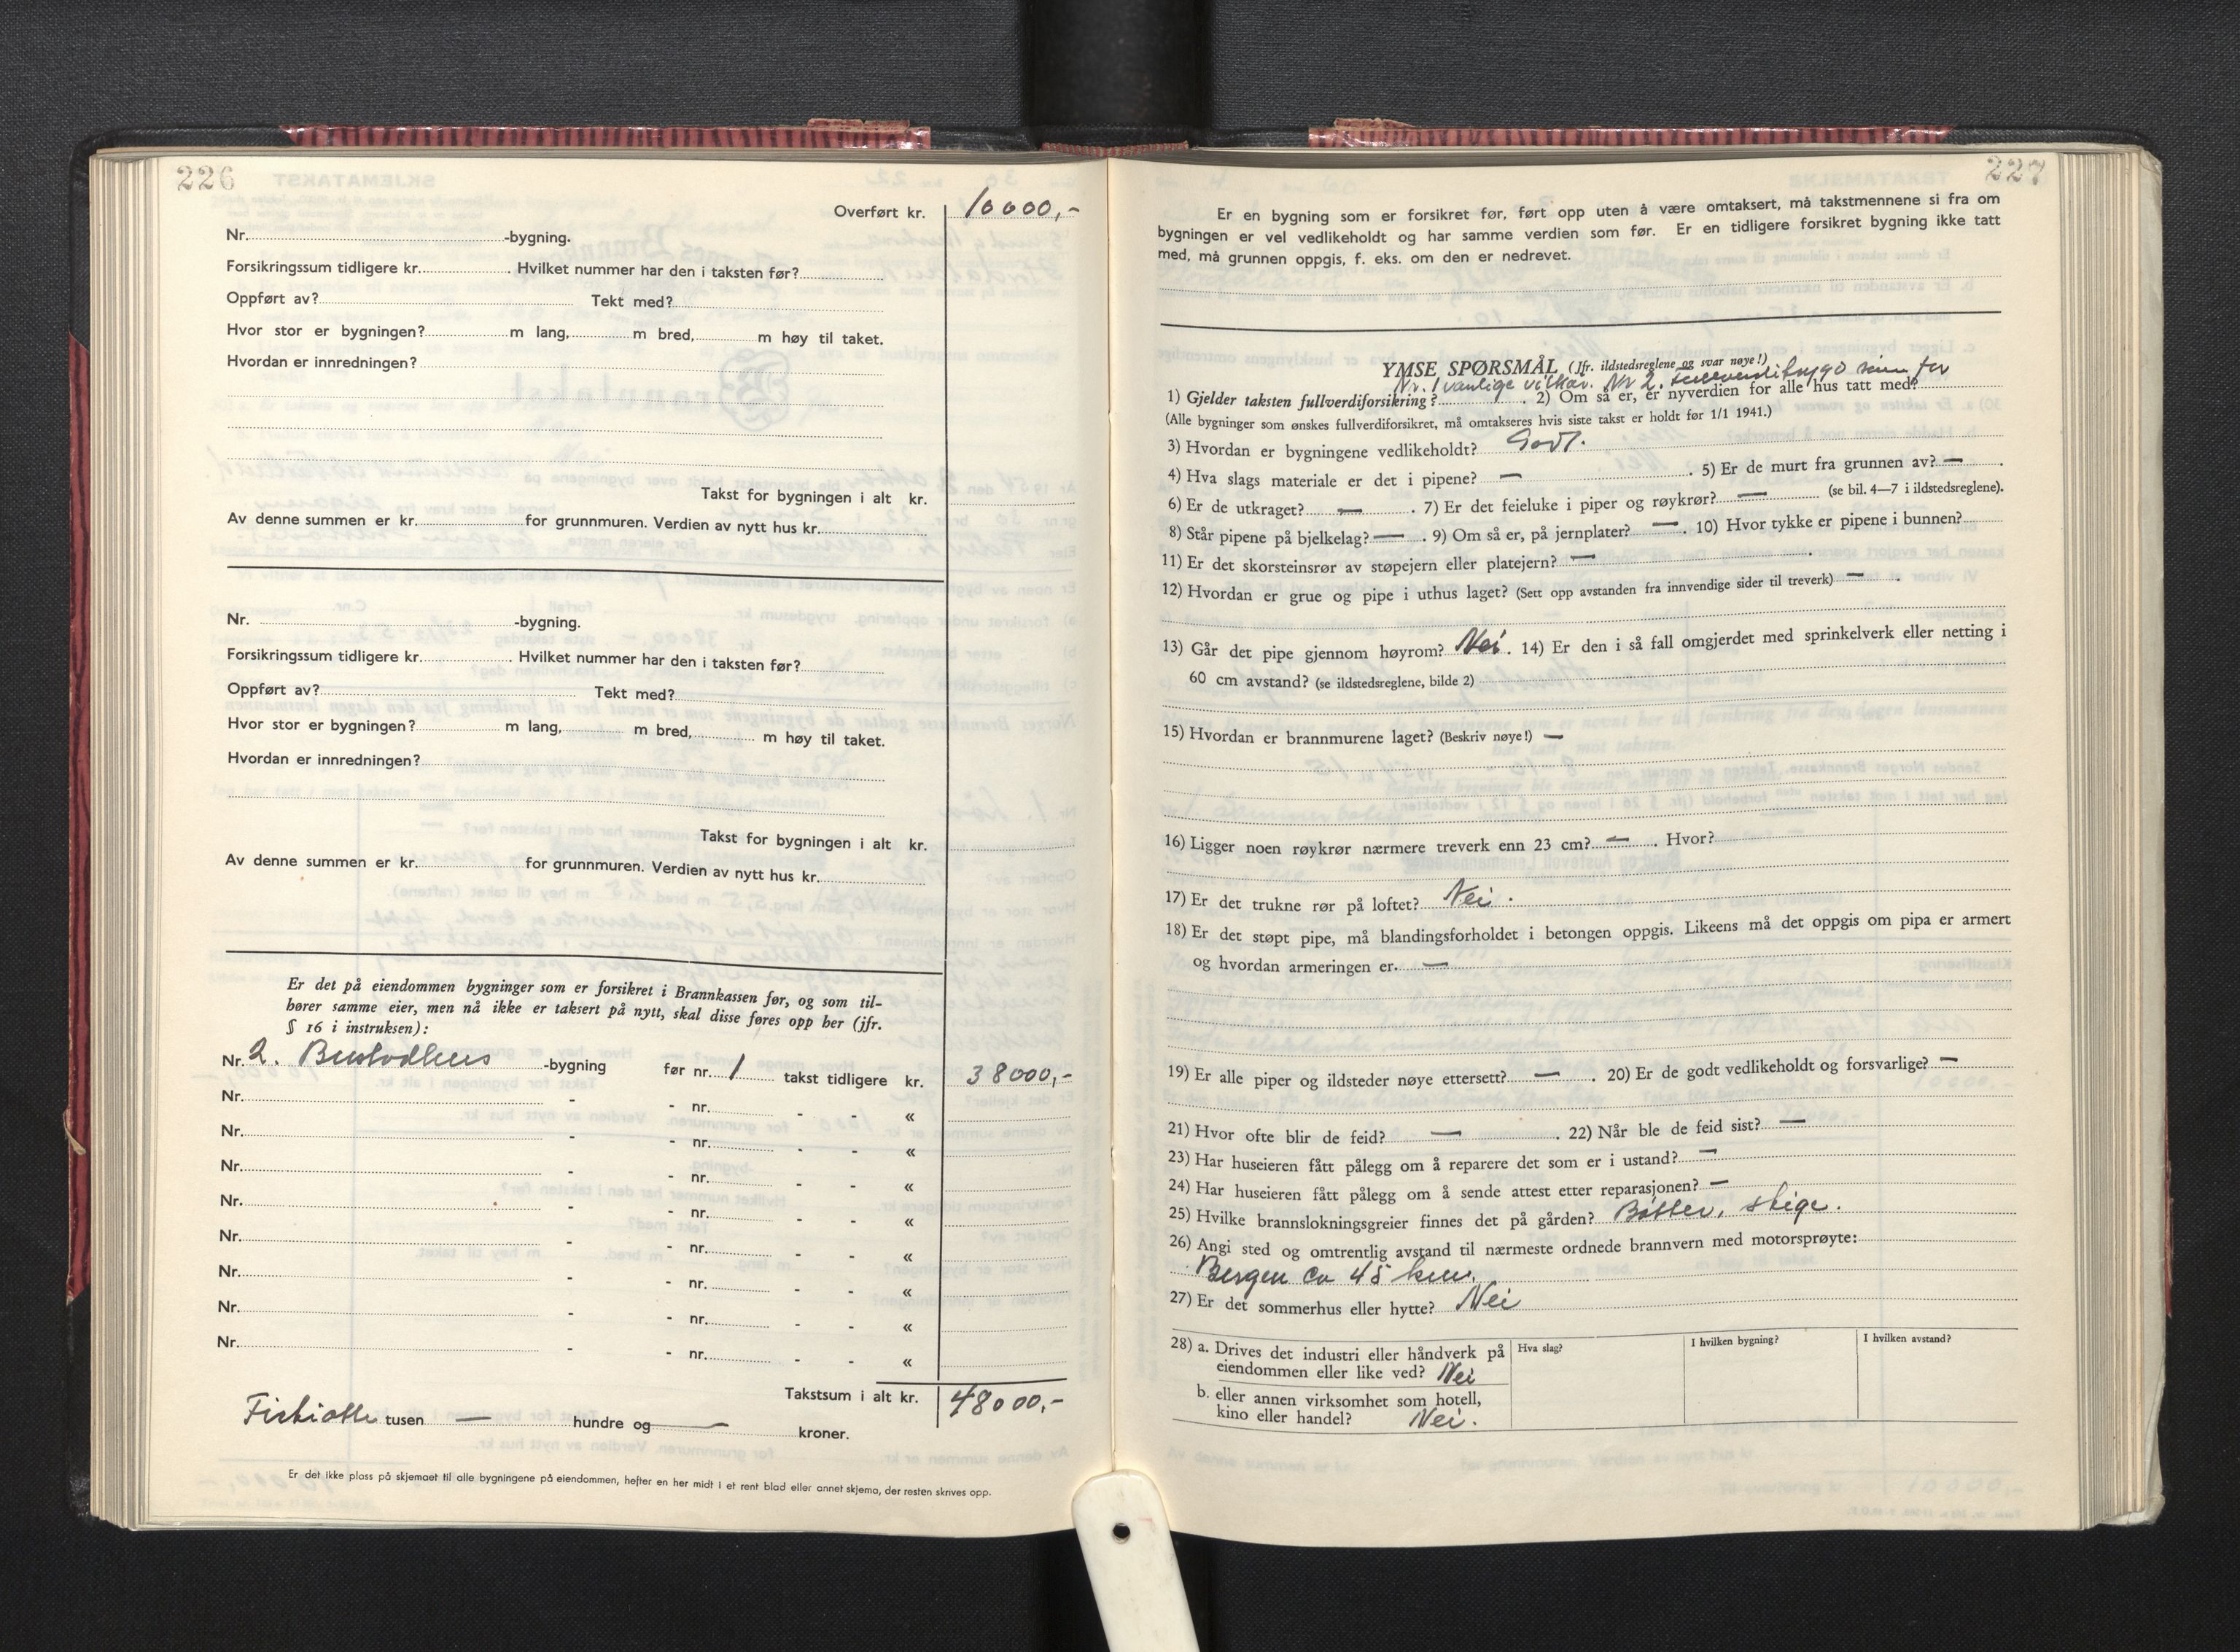 226
Overført kr. 10000,-
Nr. -bygning.
Forsikringssum tidligere kr. . Hvilket nummer har den i taksten før?
Oppført av? Tekt med?
Hvor stor er bygningen? m lang, m bred, m høy til taket.
Hvordan er innredningen?
Takst for bygningen i alt kr.
Av denne summen er kr. for grunnmuren. Verdien av nytt hus kr.
Nr. -bygning.
Forsikringssum tidligere kr. . Hvilket nummer har den i taksten før?
Oppført av? Tekt med?
Hvor stor er bygningen? m lang, m bred, m høy til taket.
Hvordan er innredningen?
Takst for bygningen i alt kr.
Av denne summen er kr. for grunnmuren. Verdien av nytt hus kr.
Er det på eiendommen bygninger som er forsikret i Brannkassen før, og som til-
hører samme eier, men nå ikke er taksert på nytt, skal disse føres opp her (jfr.
§ 16 i instruksen):
Nr. 2. Bustodhus -bygning før nr. 1 takst tidligere kr. 38000,-
Nr. - - nr. - - «
Nr. - - nr. - - «
Nr. - - nr. - - «
Nr. - - nr. - - «
Nr. - - nr. - - «
Nr. - - nr. - - «
Nr. - - nr. - - «
Nr. - - nr. - - «
Takstsum i alt kr. 48000,-
Firtiotte tusen — hundre og — kroner.
Er det ikke plass på skjemaet til alle bygningene på eiendommen, hefter en her midt i et rent blad eller annet skjema, der resten skrives opp.
227
Er en bygning som er forsikret før, ført opp uten å være omtaksert, må takstmennene si fra om
bygningen er vel vedlikeholdt og har samme verdien som før. Er en tidligere forsikret bygning ikke tatt
med, må grunnen oppgis, f. eks. om den er nedrevet.
YMSE SPØRSMÅL (Jfr. ildstedsreglene og svar nøye!)
Nr. 1 vanlige vilkår. Nr 2. som før
1) Gjelder taksten fullverdiforsikring? . 2) Om så er, er nyverdien for alle hus tatt med?
(Alle bygninger som ønskes fullverdiforsikret, må omtakseres hvis siste takst er holdt før 1/1 1941.)
3) Hvordan er bygningene vedlikeholdt? Godt.
4) Hva slags materiale er det i pipene? — . 5) Er de murt fra grunnen av? — .
6) Er de utkraget? — . 7) Er det feieluke i piper og røykrør? — (se bil. 4—7 i ildstedsreglene).
8) Står pipene på bjelkelag? — . 9) Om så er, på jernplater? — . 10) Hvor tykke er pipene i bunnen?
11) Er det skorsteinsrør av støpejern eller platejern? — .
12) Hvordan er grue og pipe i uthus laget? (Sett opp avstanden fra innvendige sider til treverk) — .
13) Går det pipe gjennom høyrom? Nei. 14) Er den i så fall omgjerdet med sprinkelverk eller netting i
60 cm avstand? (se ildstedsreglene, bilde 2)
15) Hvordan er brannmurene laget? (Beskriv nøye!) —
16) Ligger noen røykrør nærmere treverk enn 23 cm? — . Hvor?
17) Er det trukne rør på loftet? Nei.
18) Er det støpt pipe, må blandingsforholdet i betongen oppgis. Likeens må det oppgis om pipa er armert
og hvordan armeringen er. —
19) Er alle piper og ildsteder nøye ettersett? — . 20) Er de godt vedlikeholdt og forsvarlige? —
21) Hvor ofte blir de feid? — . 22) Når ble de feid sist? —
23) Har huseieren fått pålegg om å reparere det som er i ustand? —
24) Har huseieren fått pålegg om å sende attest etter reparasjonen? —
25) Hvilke brannslokningsgreier finnes det på gården? Bøtter, stige.
26) Angi sted og omtrentlig avstand til nærmeste ordnede brannvern med motorsprøyte:
Bergen ca 45 km.
27) Er det sommerhus eller hytte? Nei
28) a. Drives det industri eller håndverk på Hva slag? I hvilken bygning? I hvilken avstand?
eiendommen eller like ved? Nei
b. eller annen virksomhet som hotell,
kino eller handel? Nei.